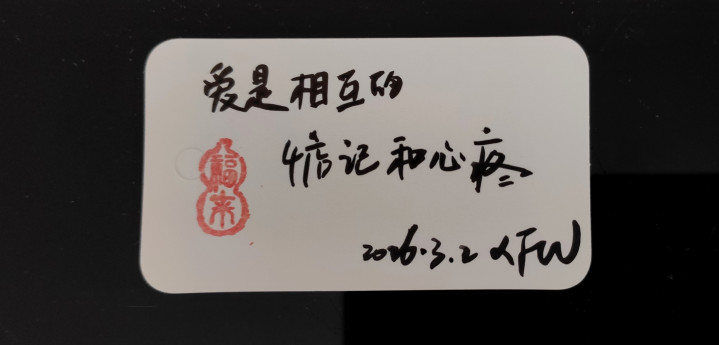 爱是相互的
惦记和心疼
福来
2026.3.2 XFW